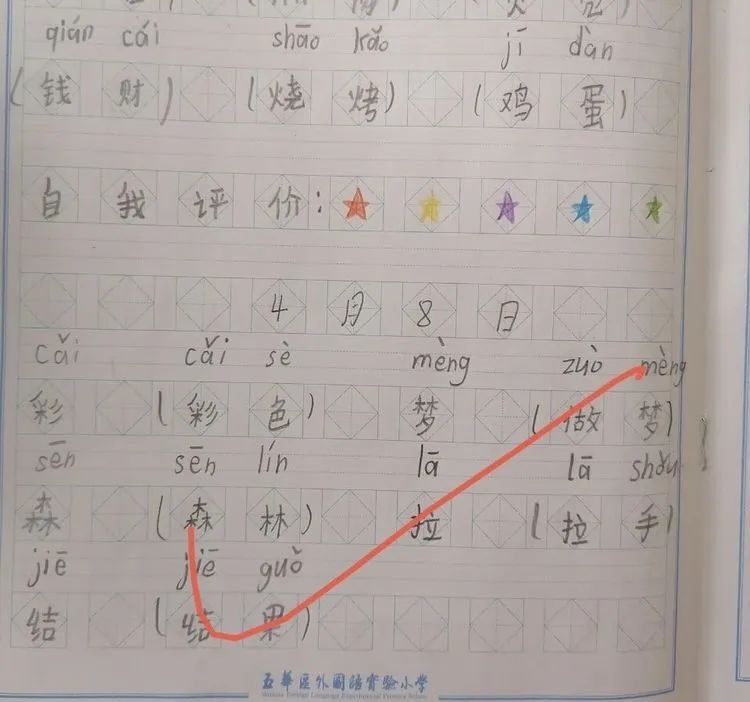 qián cái shāo kǎo jī dàn
(钱财) (烧烤) (鸡蛋)
自我评价:
4月8日
cǎi cǎi sè mèng zuò mèng
彩 (彩色) 梦 (做梦)
sēn sēn lín lā lā shǒu
森 (森林) 拉 (拉手)
jiē jiē guǒ
结 (结果)
五華區外國語實驗小學